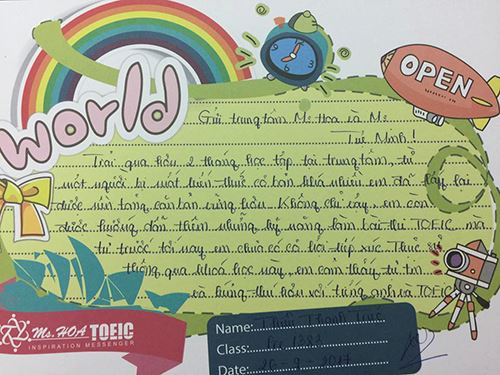 world
OPEN
Gửi trung tâm Ms Hoa và Ms
Tú Minh!
Trải qua hơn 2 tháng học tập tại trung tâm, từ
một người bị mất kiến thức cơ bản khá nhiều em đã lấy lại
được nền tảng căn bản cũng hơn. Không chỉ vậy, em còn
được hướng dẫn thêm những kỹ năng làm bài thi TOEIC mà
từ trước tới nay em chưa có cơ hội tiếp xúc. Thực sự
thông qua khoá học này, em cảm thấy tự tin
và hứng thú hơn với tiếng anh và TOEIC
Ms. HOA TOEIC
INSPIRATION MESSENGER
Name: Thanh
Class:
Date: 26-9-2017